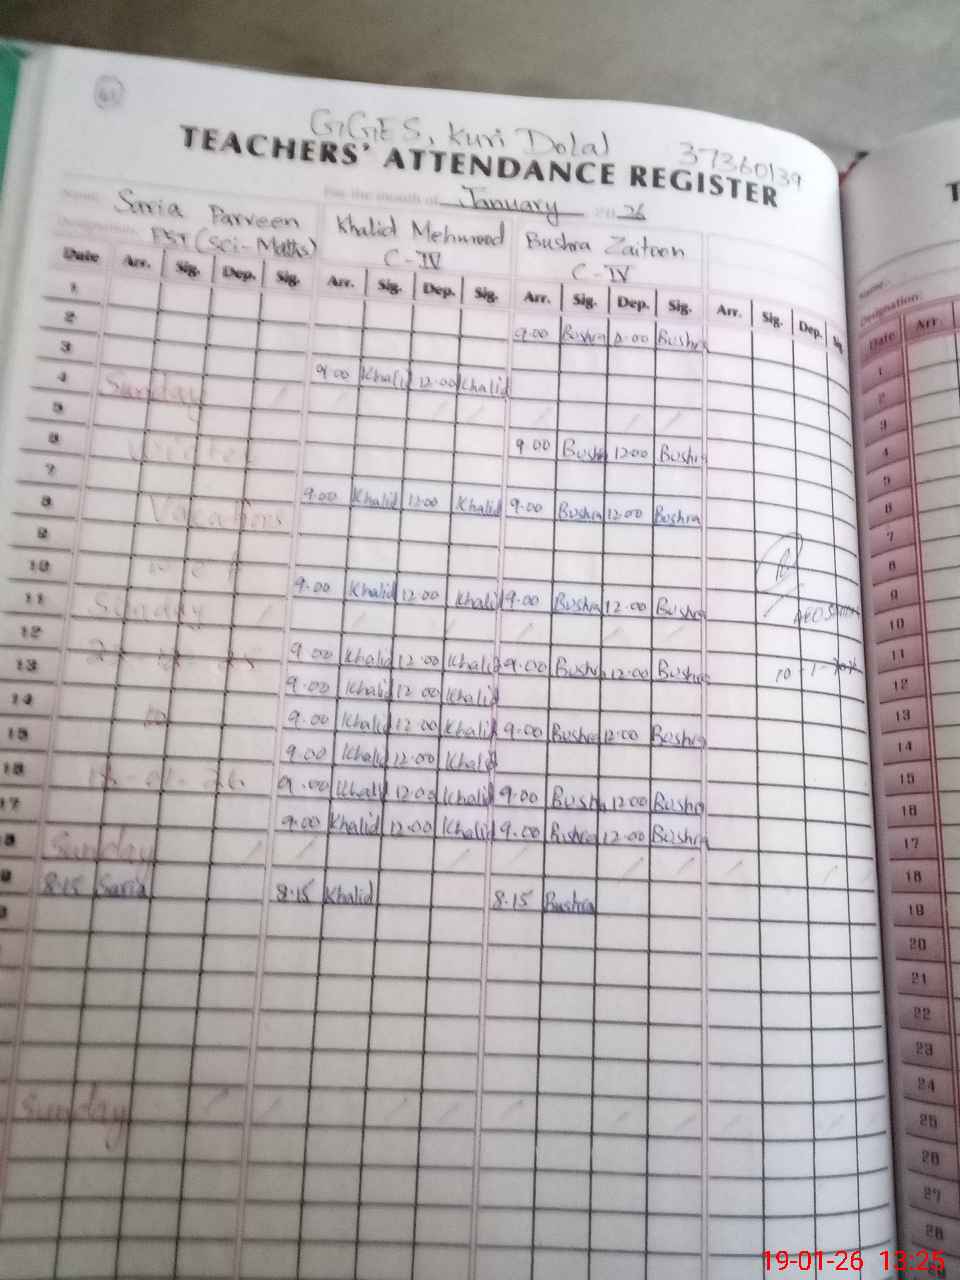 61
GGES, Kuri Dolal 37360139
TEACHERS' ATTENDANCE REGISTER
Name: For the month of January 2026
Saria Parveen Khalid Mehmood Bushra Zaitoon
PST (Sci-Maths) C-IV C-IV
Date Arr. Sig. Dep. Sig. Arr. Sig. Dep. Sig. Arr. Sig. Dep. Sig. Arr. Sig. Dep.
1
2 9.00 Bushra 12.00 Bushra
3 9.00 Khalid 12.00 Khalid
4 Sunday
5
6 Winter 9.00 Bushra 12.00 Bushra
7
8 Vacations 9.00 Khalid 12.00 Khalid 9.00 Bushra 12.00 Bushra
9
10 9.00 Khalid 12.00 Khalid 9.00 Bushra 12.00 Bushra
11 Sunday AEO
12 9.00 Khalid 12.00 Khalid 9.00 Bushra 12.00 Bushra
13 9.00 Khalid 12.00 Khalid
14 to 9.00 Khalid 12.00 Khalid 9.00 Bushra 12.00 Bushra
15 9.00 Khalid 12.00 Khalid
16 9.00 Khalid 12.00 Khalid 9.00 Bushra 12.00 Bushra
17 9.00 Khalid 12.00 Khalid 9.00 Bushra 12.00 Bushra
Sunday
8.15 Saria 8.15 Khalid 8.15 Bushra
Sunday
T
Name:
Designation:
Date Arr
1
2
3
4
5
6
7
8
9
10
11
12
13
14
15
16
17
18
19
20
21
22
23
24
25
26
27
28
19-01-26 13:25